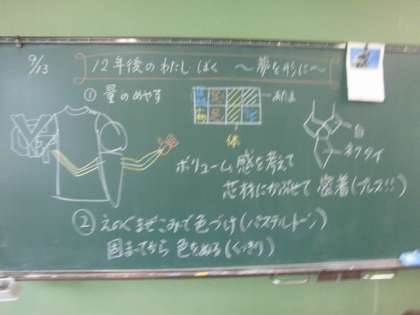 9/13
12年後のわたし ぼく ～夢を形に～
① 量のめやす
あたま
体
白
ネクタイ
ボリューム感を考えて
芯材にかぶせて 密着(プレス!!)
② えのぐまぜこみで色づけ(パステルトーン)
固まってから 色をぬる(くっきり)